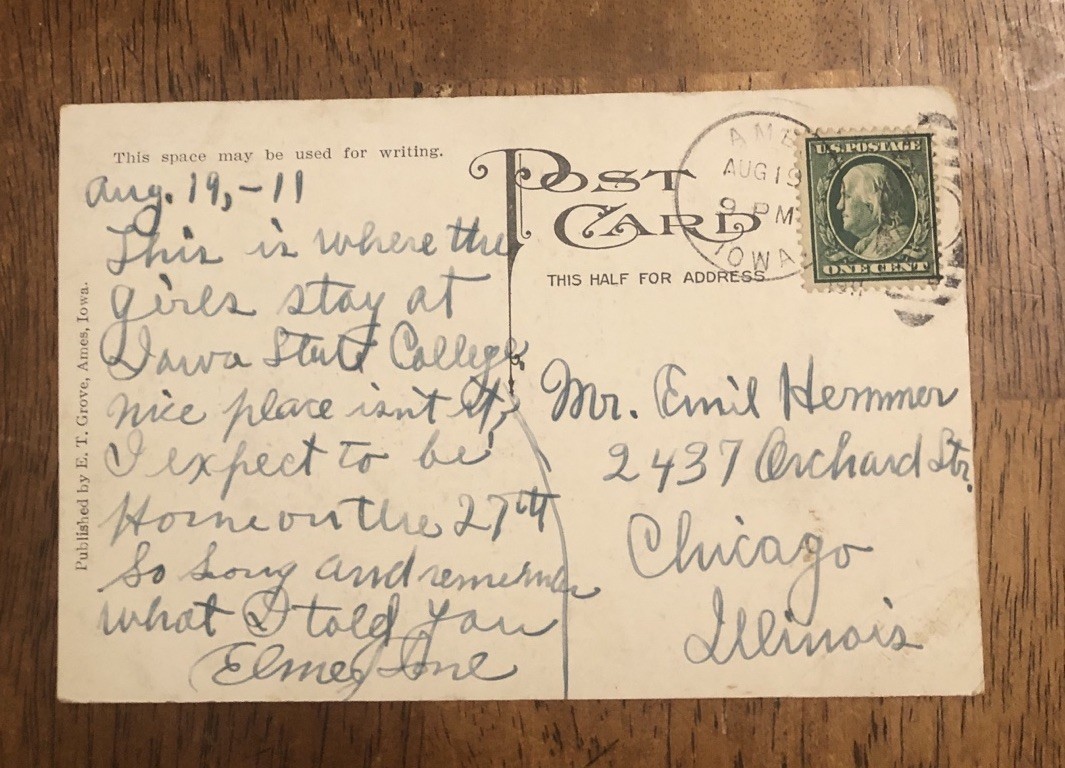 This space may be used for writing.
Aug. 19, - 11
This is where the
girls stay at
Iowa State College
nice place isn't it,
I expect to be
Home on the 27th
So Long and remember
what I told you
Elmer
Published by E. T. Grove, Ames, Iowa.
POST
CARD
THIS HALF FOR ADDRESS
AME
AUG 19
9 PM
IOWA
U.S. POSTAGE
ONE CENT
Mr. Emil Hemmer
2437 Orchard Str.
Chicago
Illinois